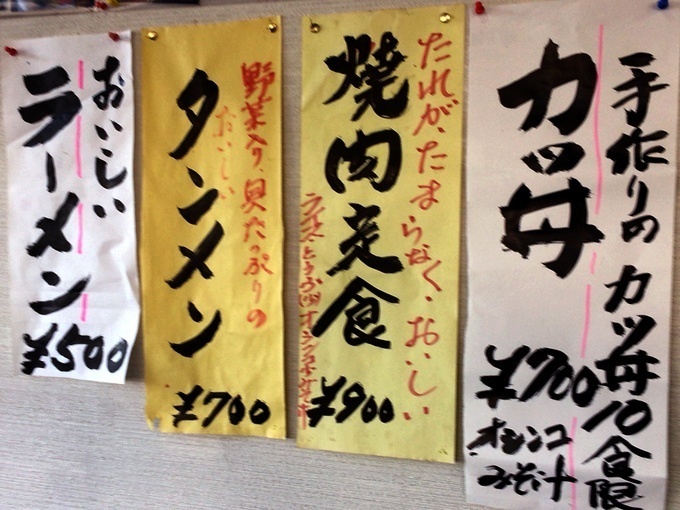 手作りのカツ丼10食限
カツ丼
¥700
オシンコ
みそ汁
たれが、たまらなく、おいしい
焼肉定食
¥900
野菜入り、具たっぷりの
おいしい
タンメン
¥700
おいしい
ラーメン
¥500